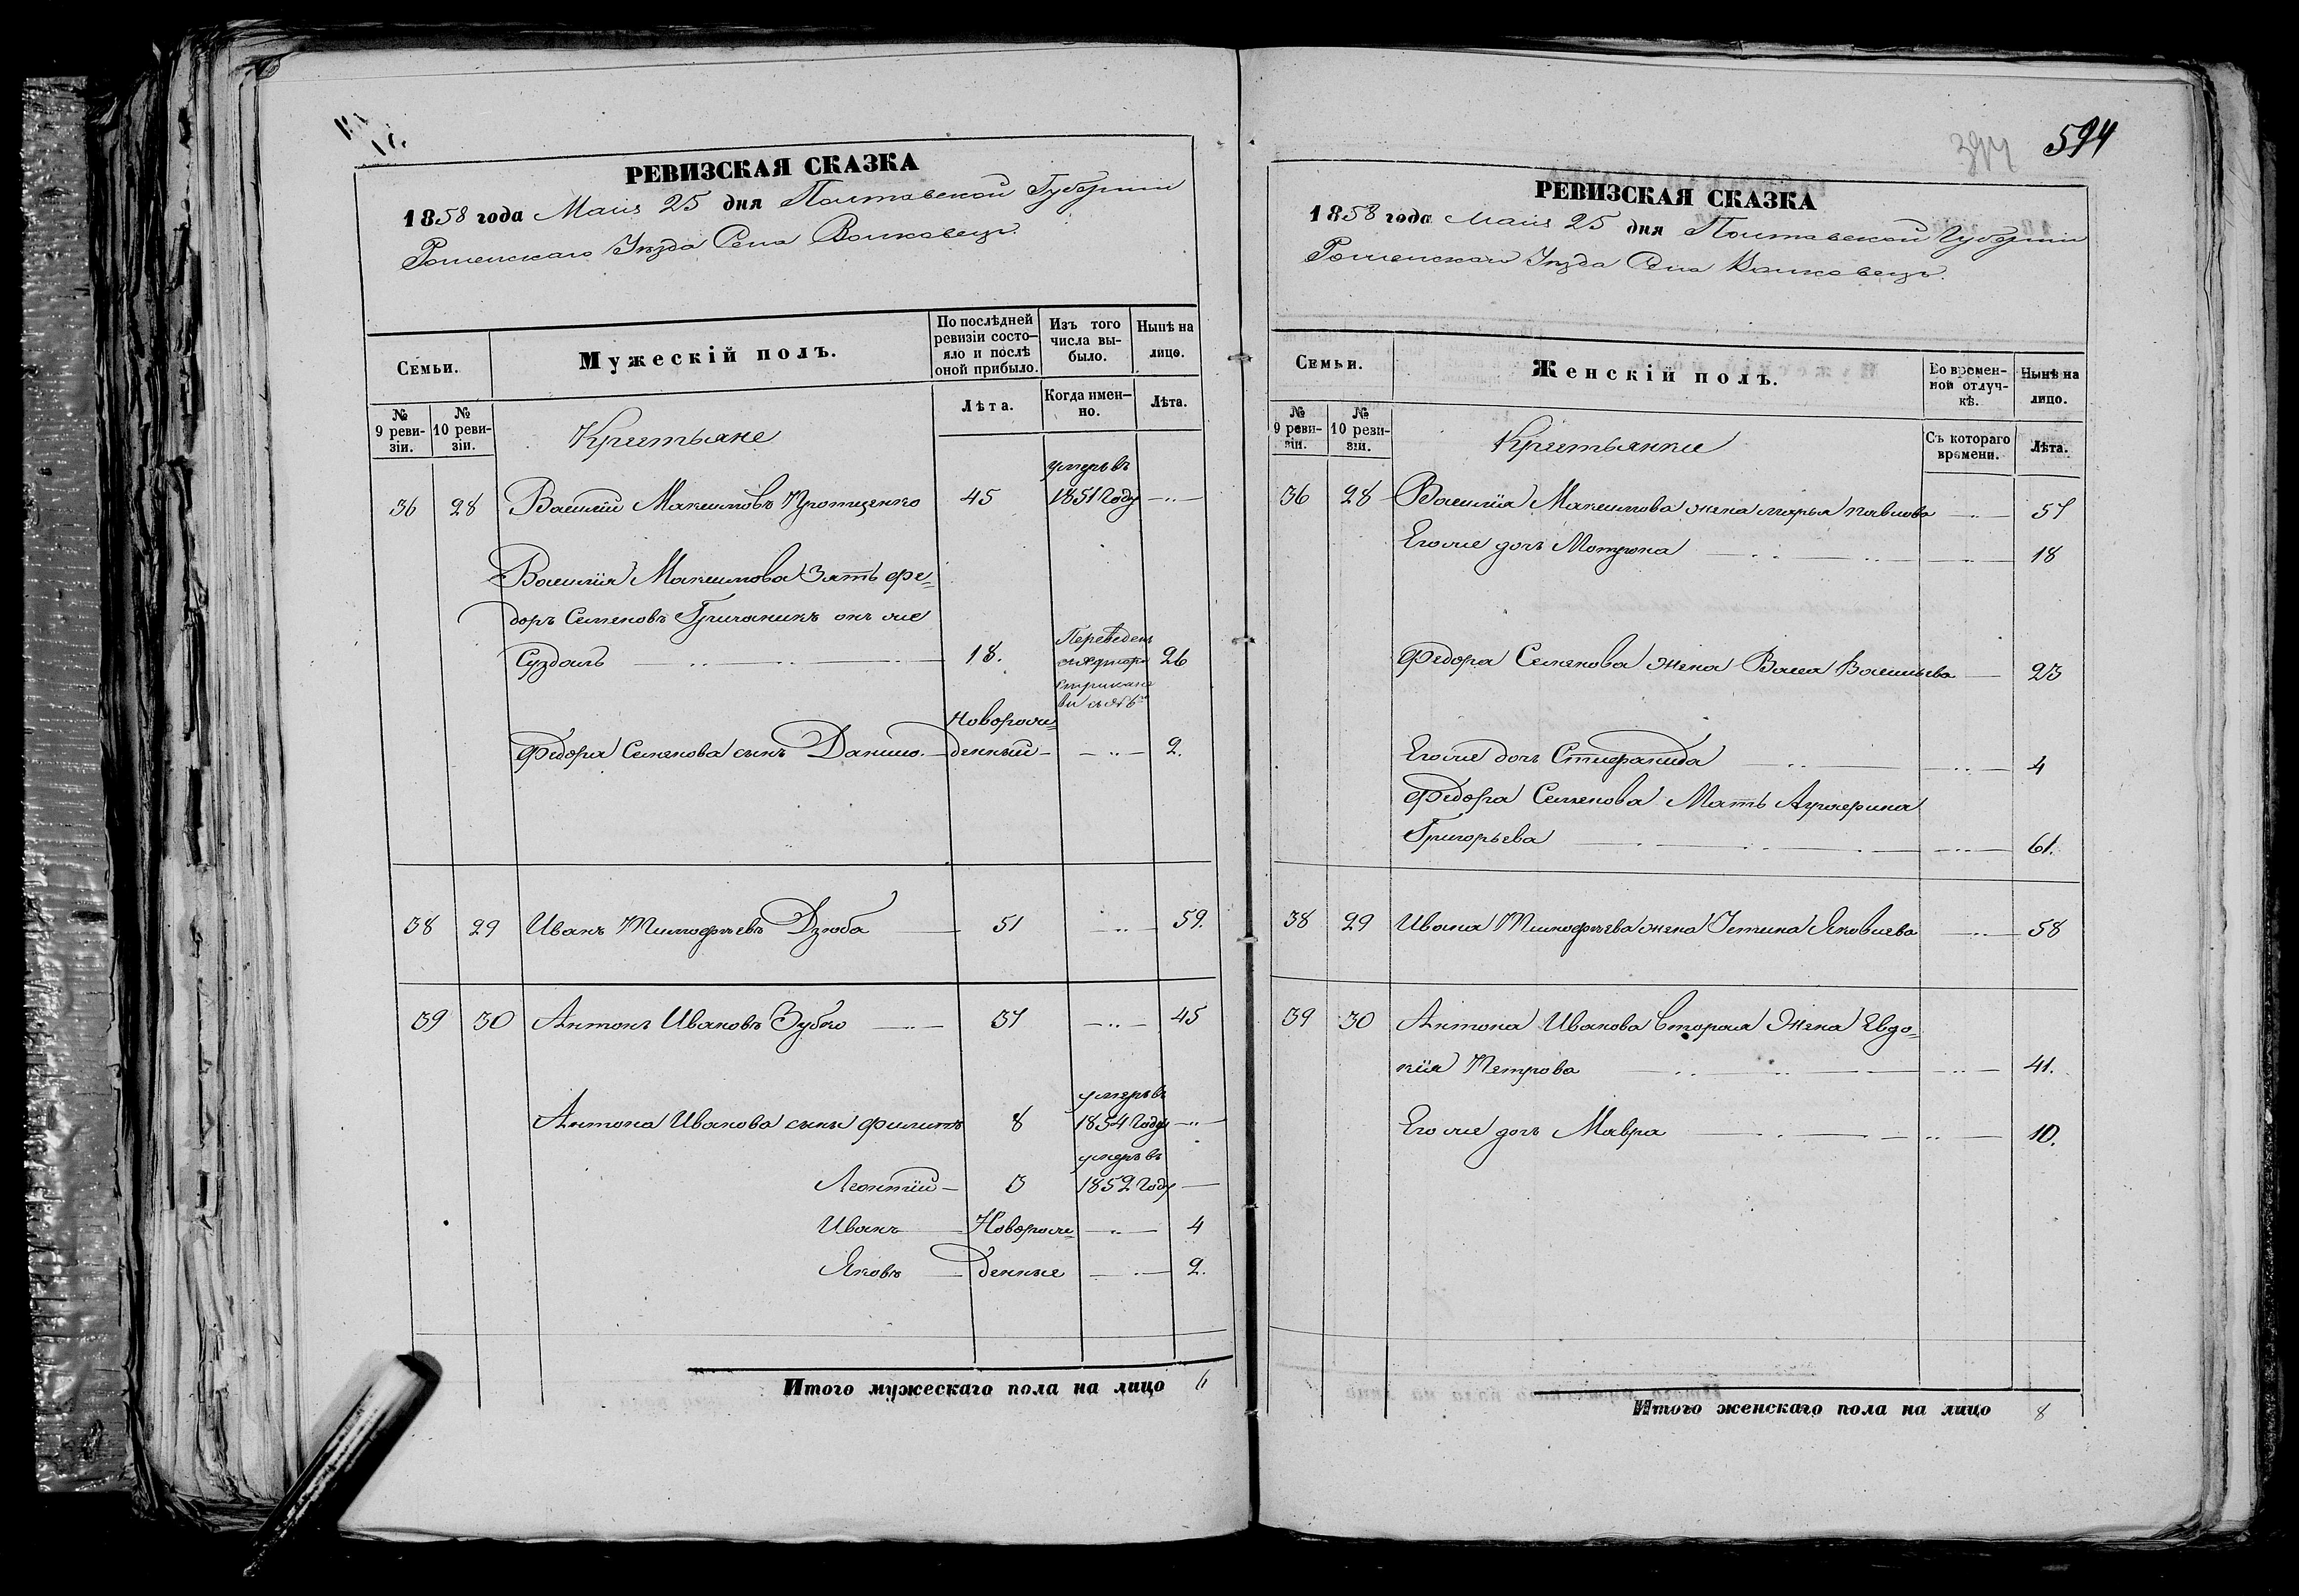 РЕВИЗСКАЯ СКАЗКА
1858 года Маія 25 дня Полтавской Губерніи
Роменскаго Уѣзда Села Волковец.
Семьи.
Мужескій полъ.
По послѣдней ревизіи состояло и послѣ оной прибыло.
Изъ того числа выбыло.
Нынѣ на лицо.
№ 9 ревизіи.
№ 10 ревизіи.
Крестьяне
Лѣта.
Когда именно.
Лѣта.
36 28 Василій Максимовъ Протценко 45 умеръ въ 1851 Году
Василія Максимова Зять Фе-
доръ Семеновъ онъ же
Суздаль 18. Переведенъ 26
Федора Семенова сынъ Данило Новорожденный 2.
38 29 Иванъ Тимофѣевъ Дзюба 51 59.
39 30 Антонъ Ивановъ Зубко 37 45
Антона Иванова сыны Филипъ 8 умеръ въ 1854 Году
Леонтій 3 умеръ въ 1852 Году
Иванъ Новорож- 4
Яковъ денные 2.
Итого мужескаго пола на лицо 6
594
394
РЕВИЗСКАЯ СКАЗКА
1858 года Маія 25 дня Полтавской Губерніи
Роменскаго Уѣзда Села Волковецъ.
Семьи.
Женскій полъ.
Во временной отлучкѣ.
Нынѣ на лицо.
№ 9 ревизіи.
№ 10 ревизіи.
Крестьянки
Съ котораго времени.
Лѣта.
36 28 Василія Максимова жена Марья Павлова 57
Его же дочь Мотрона 18
Федора Семенова жена Васса Васильева 23
Его же дочь Стефанида 4
Федора Семенова Мать Агафина
Григорьева 61.
38 29 Ивана Тимофѣева жена Устина Яковлева 58
39 30 Антона Иванова вторая Жена Евдо-
кія Петрова 41.
Его же дочь Мавра 10.
Итого женскаго пола на лицо 8